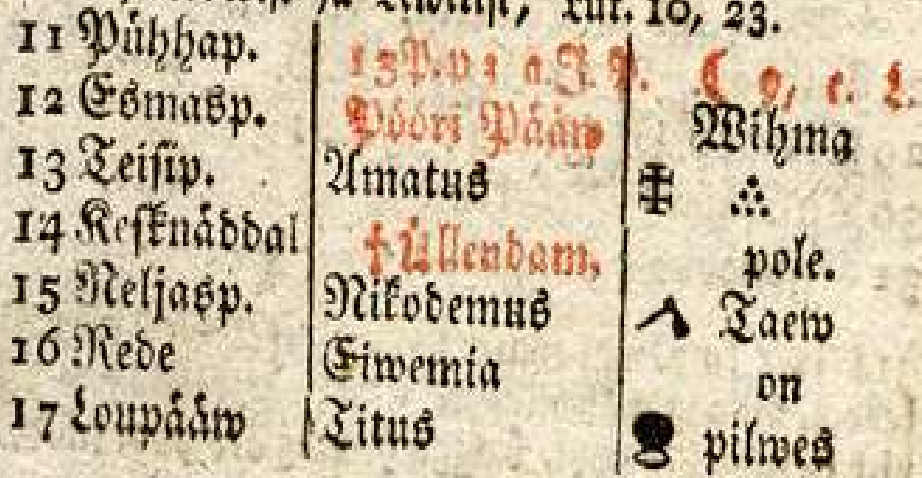 Luk. 10, 23.
11 Pühhap. 13 P. p. a. J. P. ☾ 9, e. L.
12 Esmasp. Pööri Pääw Wihma
13 Teisip. Amatus
14 Kesknäddal † Üllendam. pole.
15 Neljasp. Nikodemus Taew
16 Rede Eiwemia on
17 Loupääw Titus pilwes